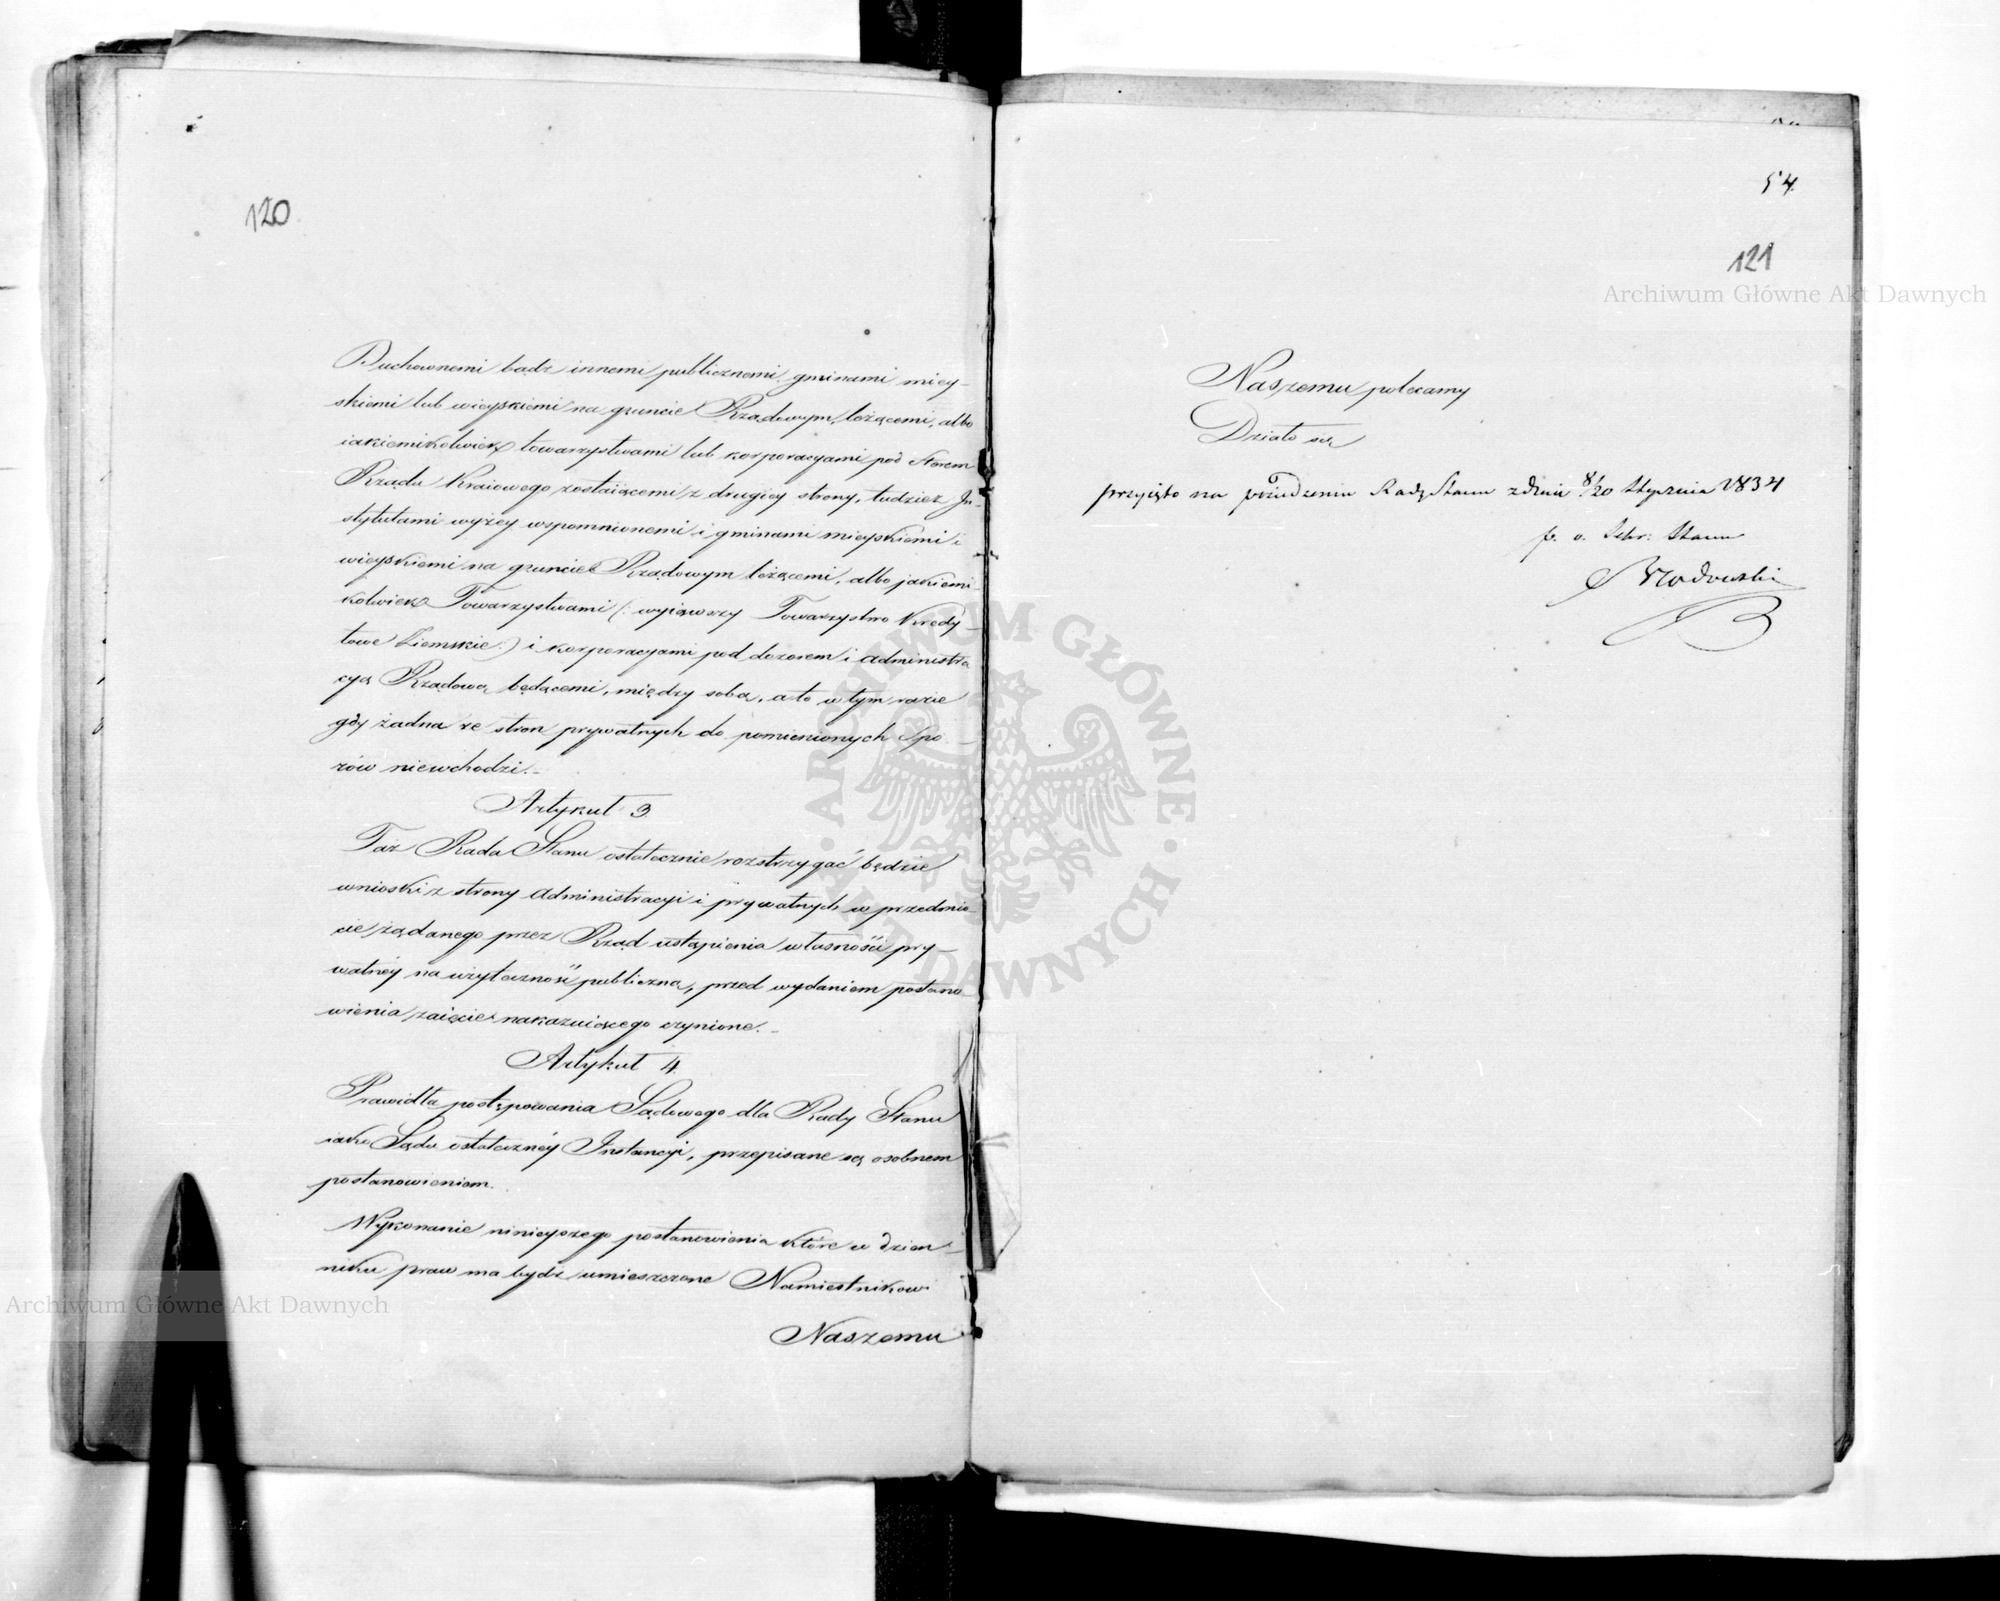 120
Duchownemi bądz innemi publicznemi, gminami miey-
skiemi lub wieyskiemi na gruncie Rządowym leżącemi, albo
iakiemikolwiek towarzystwami lub korporacyami pod sterem
Rządu Kraiowego zostaiącemi z drugiey strony, tudzież In-
stytutami wyżey wspomnionemi i gminami mieyskiemi i
wieyskiemi na gruncie Rządowym leżącemi, albo jakiemi
kolwiek Towarzystwami (: wyiąwszy Towarzystwo Kredy-
towe Ziemskie :) i korporacyami pod dozorem i administra
cyą Rządową będącemi, między sobą, a to w tym razie
gdy żadna ze stron prywatnych do pomienionych Spo-
rów niewchodzi.-
Artykuł 3.
Taż Rada Stanu ostatecznie rozstrzygać będzie
wnioski z strony administracyi i prywatnych w przedmio-
cie żądanego przez Rząd ustąpienia własności pry-
watnéy na użyteczność publiczną, przed wydaniem postano
wienia zaięcie nakazuiącego czynione.-
Artykuł 4.
Prawidła postępowania Sądowego dla Rady Stanu
iako Sądu ostateczney Instancyi, przepisane są osobnem
postanowieniem.
Wykonanie ninieyszego postanowienia które w dzien-
niku praw ma bydź umieszczone Namiestnikowi
Naszemu
54.
121
Naszemu polecamy
Działo się
przyięto na posiedzeniu Rady Stanu z dnia 8/20 Stycznia 1834
p. o. Sekr: Stanu
Archiwum Główne Akt Dawnych
Archiwum Główne Akt Dawnych
ARCHIWUM GŁÓWNE AKT DAWNYCH